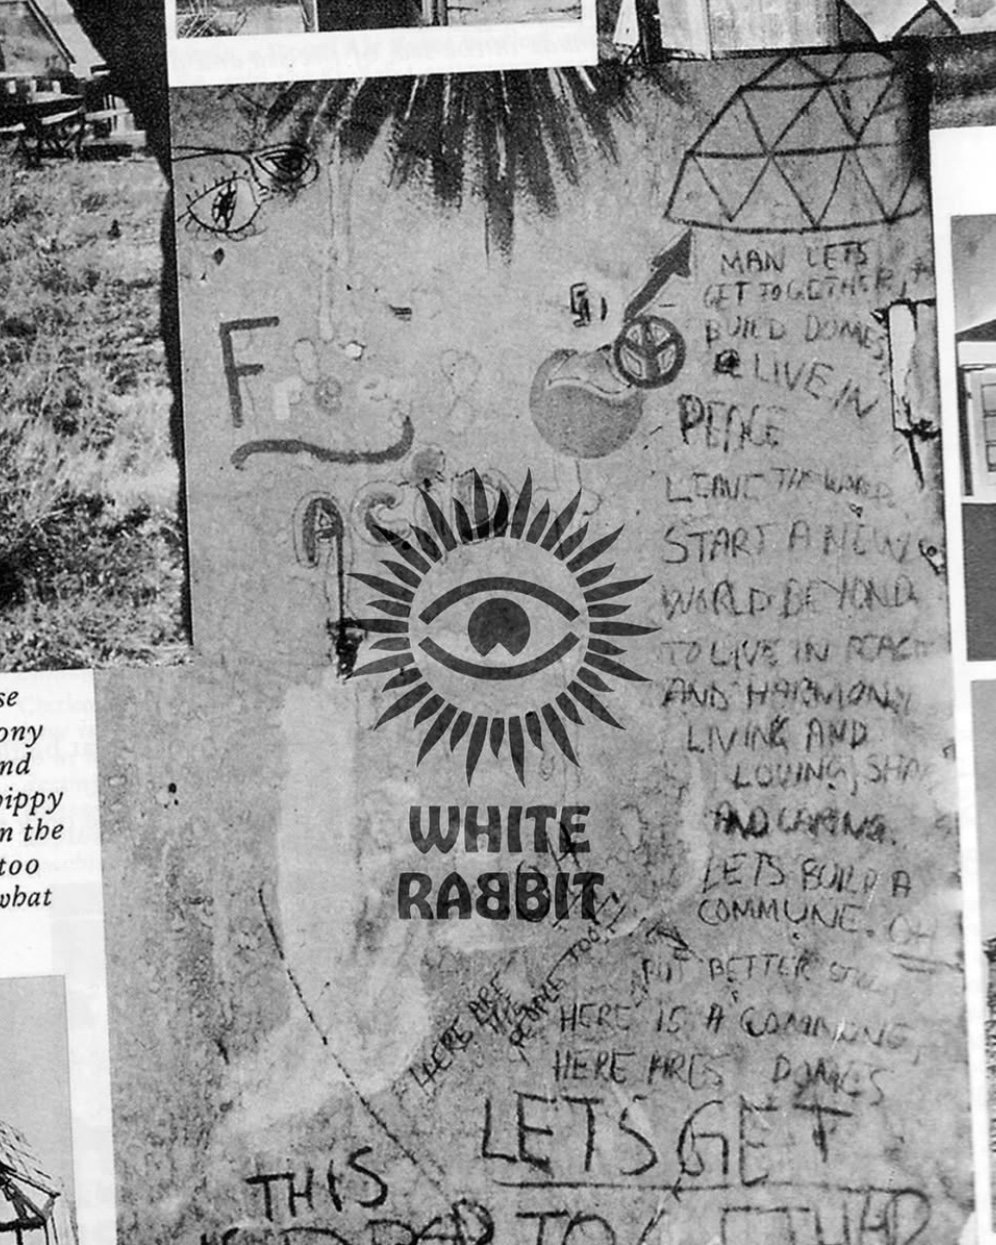 se
ony
nd
hippy
n the
too
what
F
ACID
MAN LETS
GET TOGETHER,
BUILD DOMES
& LIVE IN
PEACE
LEAVE THE WORLD
START A NEW
WORLD BEYOND
TO LIVE IN PEACE
AND HARMONY
LIVING AND
LOVING, SHA
AND CARING.
LETS BUILD A
COMMUNE. OH
BUT BETTER STILL
HERE IS A COMMUNE,
HERE ARES DOMES
HERE ARE
PEOPLE TOO!
LETS GET
THIS
TOGETHER
WHITE
RABBIT